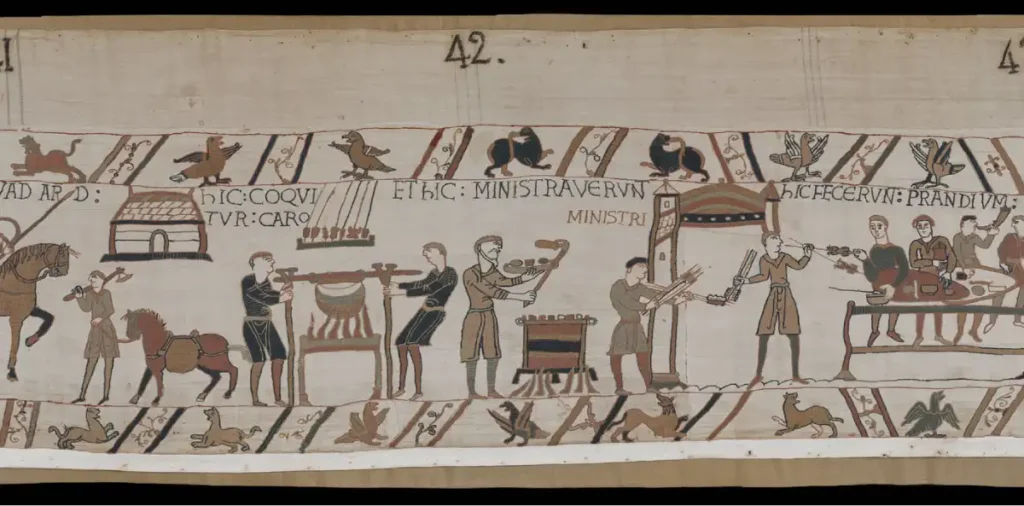 42.
VADARD:
hIC:COQVI
TVR:CARO
EThIC: MINISTRAVERVN
MINISTRI
hIC FECERVN: PRANDIVM: